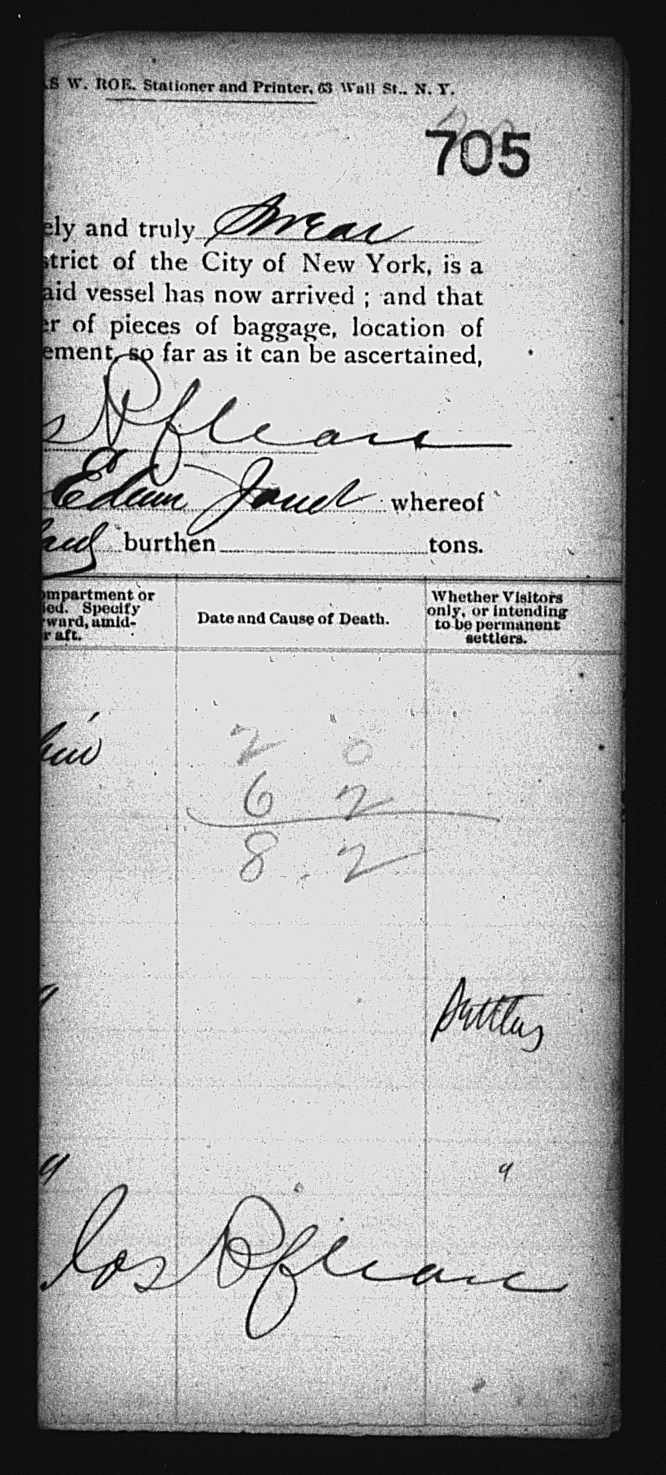 S W. ROE. Stationer and Printer, 63 Wall St., N. Y.
705
ely and truly Swear
strict of the City of New York, is a
aid vessel has now arrived ; and that
er of pieces of baggage, location of
ement, so far as it can be ascertained,
Edwin whereof
burthen tons.
ompartment or
ied. Specify
ward, amid-
r aft.
Date and Cause of Death.
Whether Visitors
only, or intending
to be permanent
settlers.
2 0
6 2
8 . 2
Settlers
"
"
"
Jos